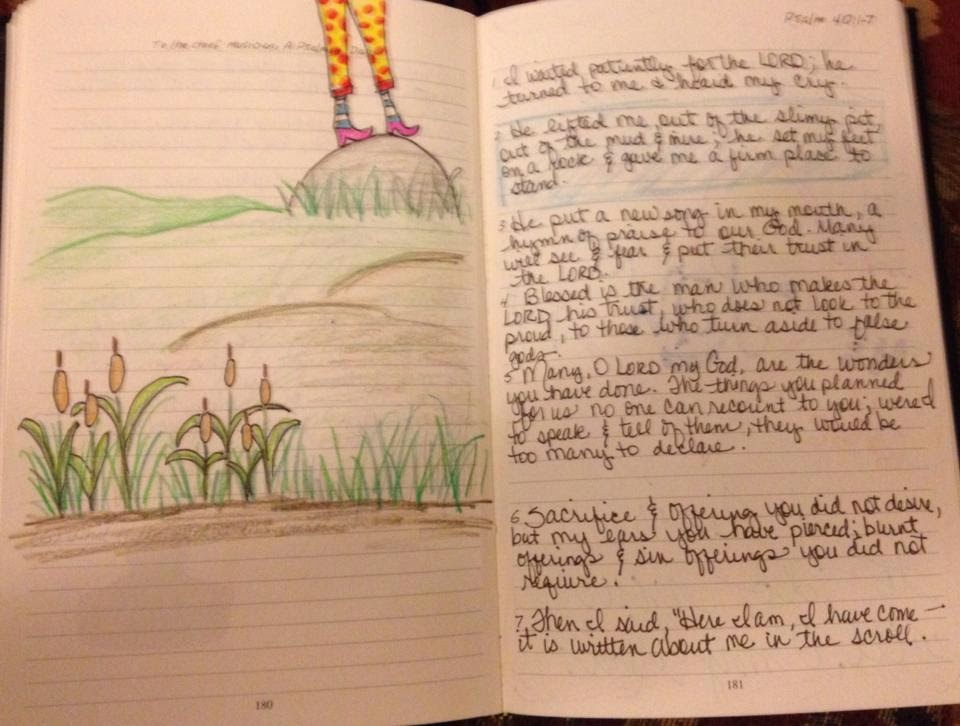 To the chief Musician, A Psalm
180
Psalm 40:1-7
1 I waited patiently for the LORD; he
turned to me & heard my cry.
2 He lifted me out of the slimy pit,
out of the mud & mire; he set my feet
on a rock & gave me a firm place to
stand.
3 He put a new song in my mouth, a
hymn of praise to our God. Many
will see & fear & put their trust in
the LORD.
4 Blessed is the man who makes the
LORD his trust, who does not look to the
proud, to those who turn aside to false
gods.
5 Many, O LORD my God, are the wonders
you have done. The things you planned
for us no one can recount to you; were I
to speak & tell of them, they would be
too many to declare.
6 Sacrifice & offering you did not desire,
but my ears you have pierced; burnt
offerings & sin offerings you did not
require.
7. Then I said, "Here I am, I have come —
it is written about me in the scroll.
181